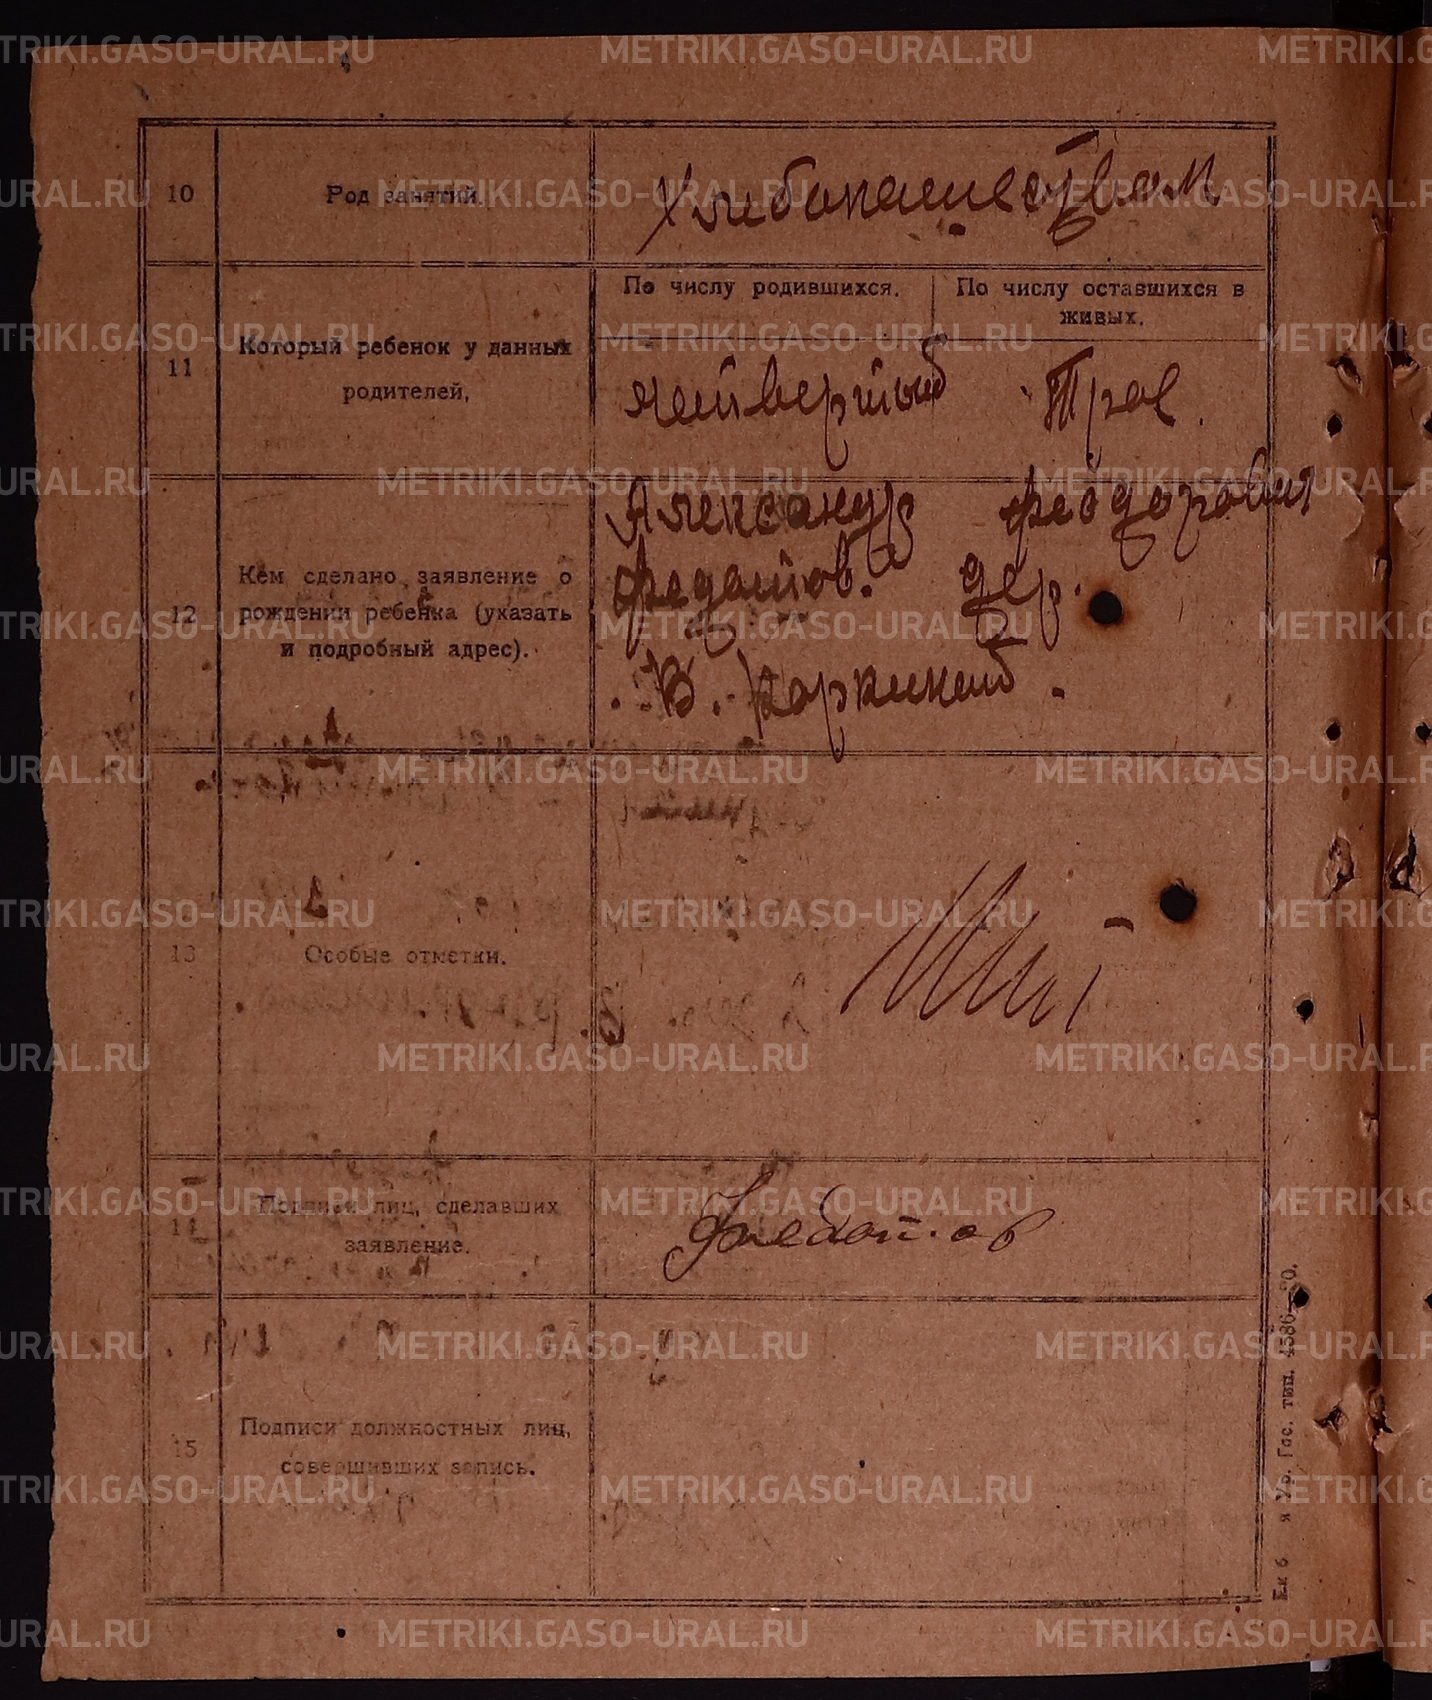 10 Род занятий. Хлебопашеством
По числу родившихся. По числу оставшихся в
живых.
11 Который ребенок у данных
родителей, четвертый Трое.
Александр Феодорович
Федотов. дер.
12 Кем сделано заявление о
рождении ребенка (указать
и подробный адрес).
В.
13 Особые отметки.
14 Подписи лиц, сделавших
заявление. Федотов
15 Подписи должностных лиц,
совершивших запись.
Ур. Гос. тип. 4586
METRIKI.GASO-URAL.RU